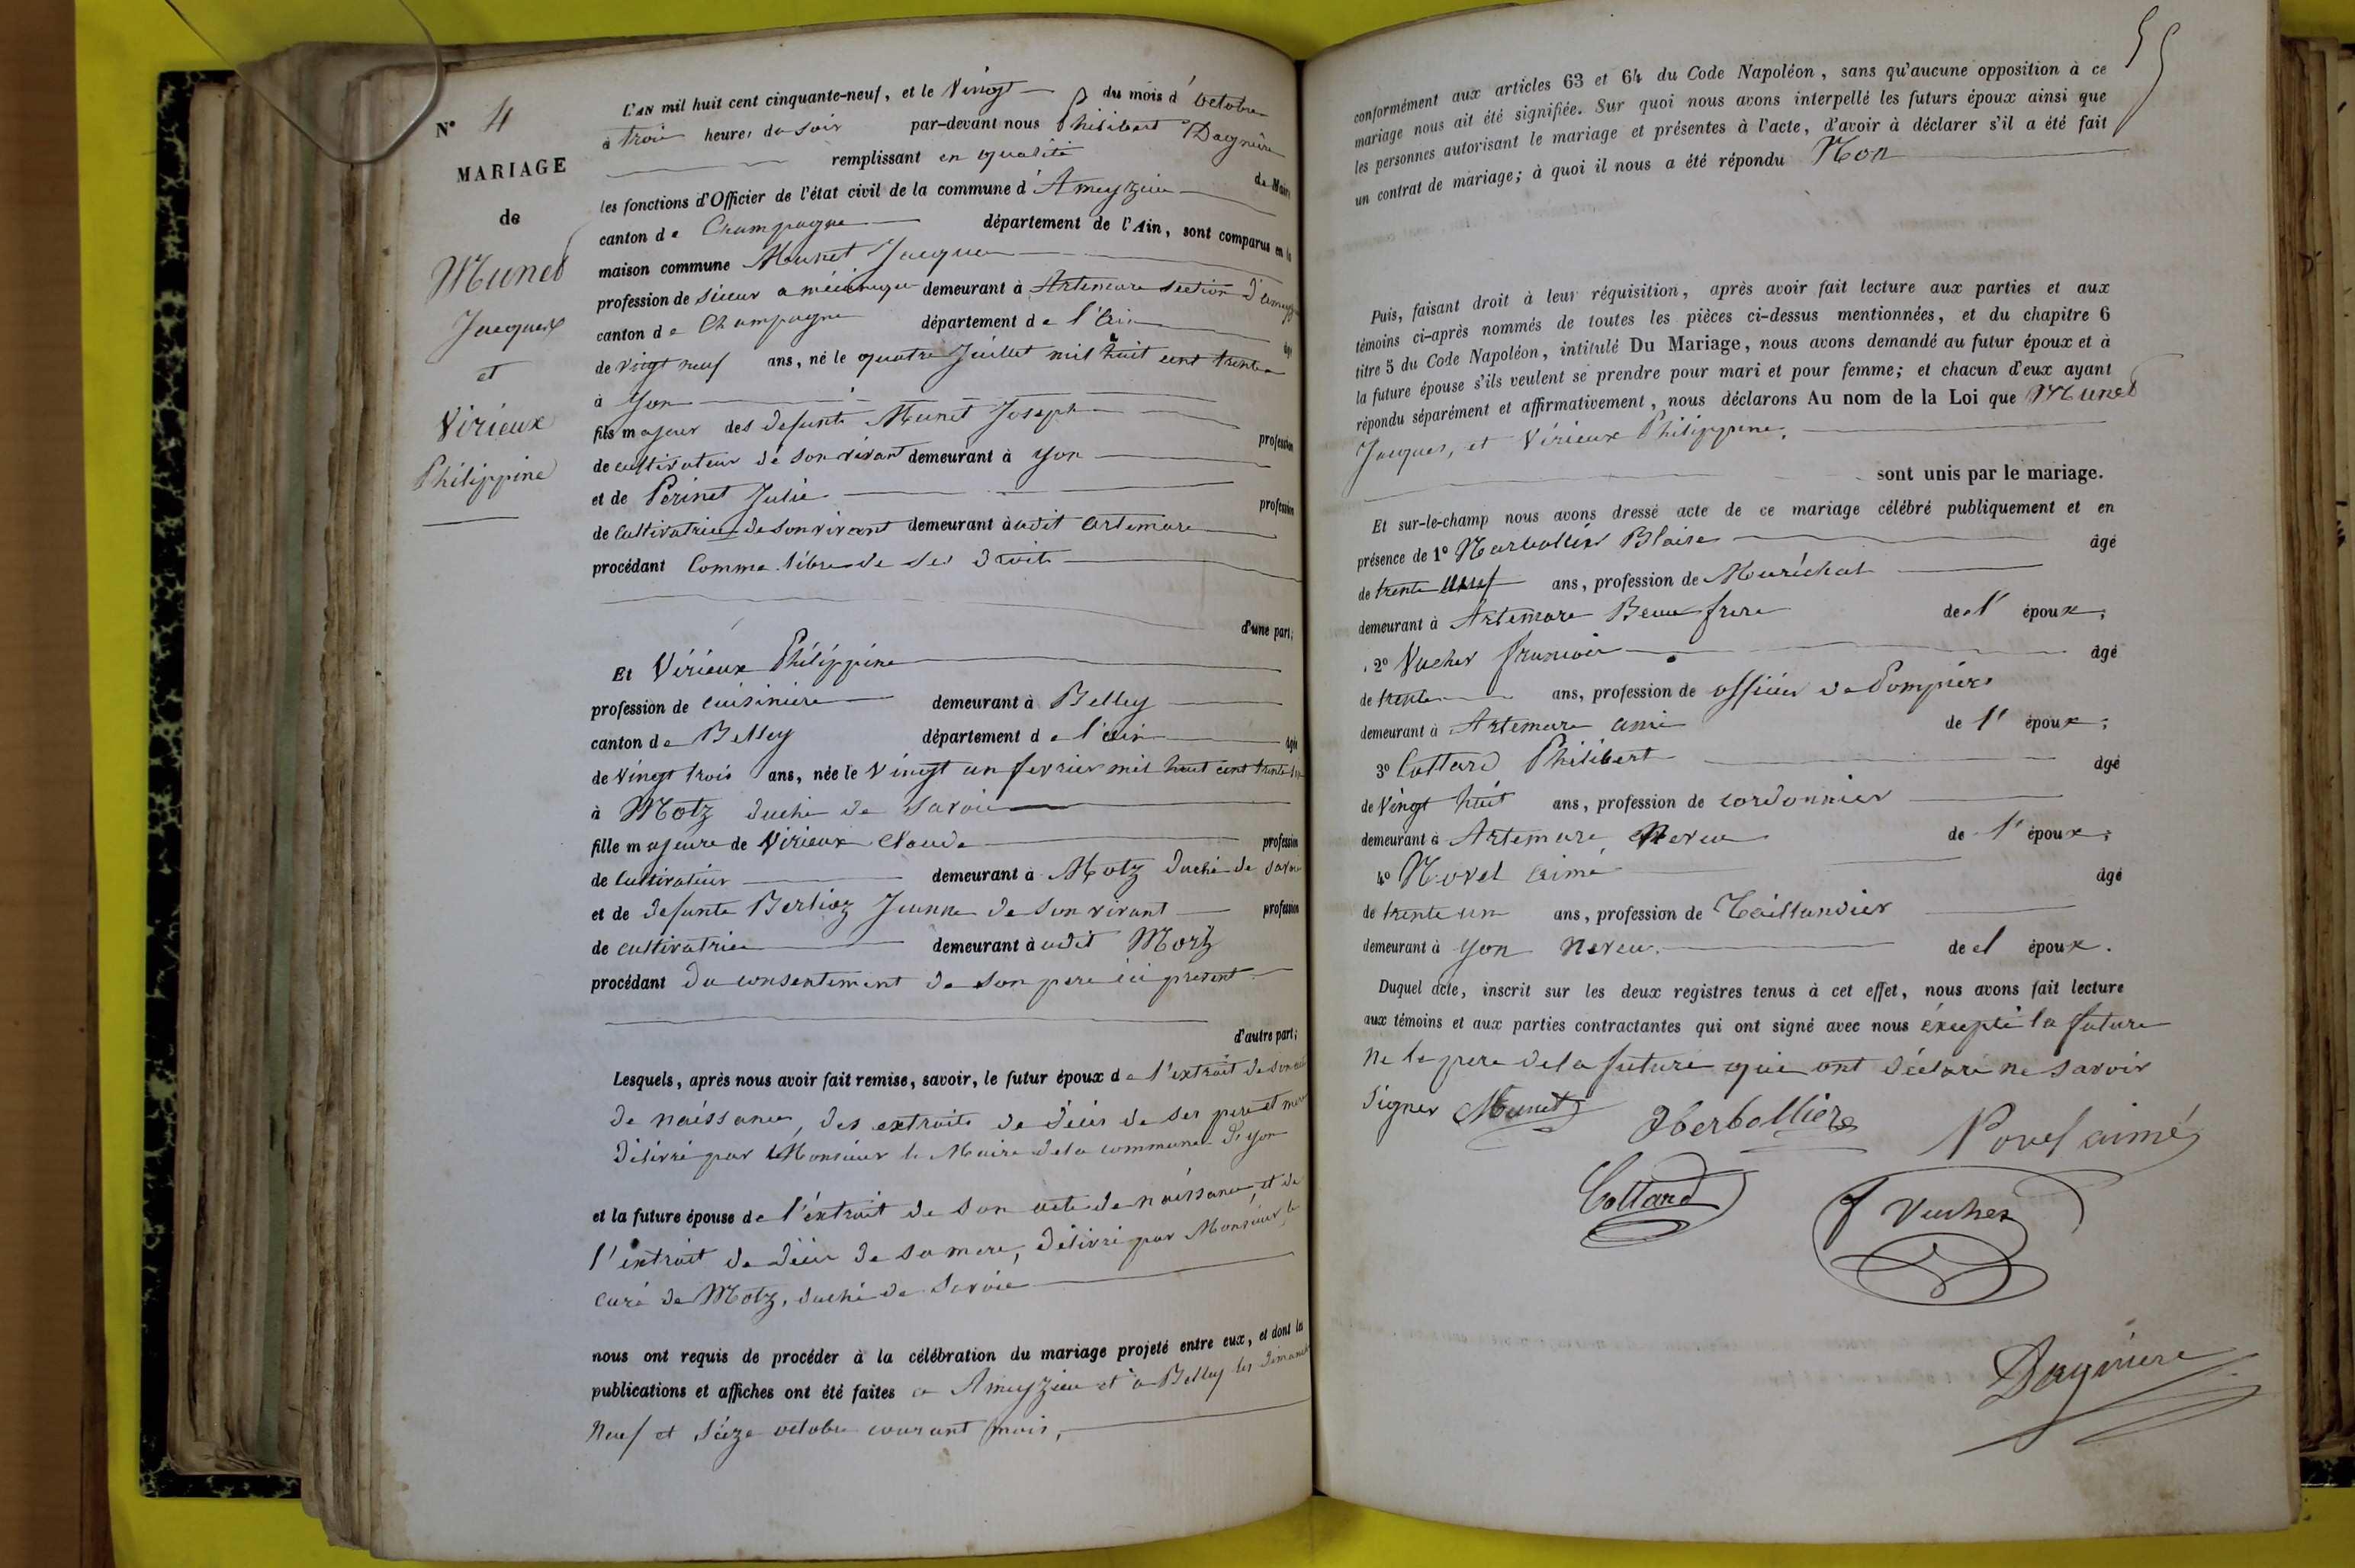 N° 4
MARIAGE
de
Munet
Jacques
et
Virieux
Philippine
L'AN mil huit cent cinquante-neuf, et le Vingt du mois d'octobre
à trois heures du soir par-devant nous Philibert Dagnière
remplissant en qualité de Maire
les fonctions d'Officier de l'état civil de la commune d'Ameyzieu
canton de Champagne département de l'Ain, sont comparus en la
maison commune Munet Jacques
profession de scieur a mécanique demeurant à Artemare section d'
canton de Champagne département de l'Ain âgé
de vingt neuf ans, né le quatre Juillet mil huit cent trente
à yon
fils majeur des defunts Munet Joseph profession
de cultivateur de son vivant demeurant à yon
et de Perinet Julie profession
de Cultivatrice de son vivant demeurant à udit artemare
procédant Comme libre de ses droits
d'une part;
Et Virieux Philippine
profession de cuisiniere demeurant à Belley
canton de Belley département de l'ain âgée
de Vingt trois ans, née le Vingt un fevrier mil huit cent trente
à Motz duché de Savoie
fille majeure de Virieux Claude profession
de Cultivateur demeurant à Motz Duché de Savoie
et de defunte Berlioz Jeanne de son vivant profession
de cultivatrice demeurant à udit Motz
procédant du consentement de son pere ici présent
d'autre part;
Lesquels, après nous avoir fait remise, savoir, le futur époux de l'extrait de son acte
de naissance, des extraits de décès de ses pere et mere
délivré par Monsieur le Maire de la commune d'yon
et la future épouse de l'extrait de son acte de naissance, et de
l'extrait de décès de sa mere, délivré par Monsieur le
curé de Motz, duché de Savoie
nous ont requis de procéder à la célébration du mariage projeté entre eux, et dont les
publications et affiches ont été faites a Ameyzieu et à Belley les dimanches
Neuf et Seize octobre courant mois,
55
conformément aux articles 63 et 64 du Code Napoléon, sans qu'aucune opposition à ce
mariage nous ait été signifiée. Sur quoi nous avons interpellé les futurs époux ainsi que
les personnes autorisant le mariage et présentes à l'acte, d'avoir à déclarer s'il a été fait
un contrat de mariage; à quoi il nous a été répondu Non
Puis, faisant droit à leur réquisition, après avoir fait lecture aux parties et aux
témoins ci-après nommés de toutes les pièces ci-dessus mentionnées, et du chapitre 6
titre 5 du Code Napoléon, intitulé Du Mariage, nous avons demandé au futur époux et à
la future épouse s'ils veulent se prendre pour mari et pour femme; et chacun d'eux ayant
répondu séparément et affirmativement, nous déclarons Au nom de la Loi que Munet
Jacques, et Virieux Philippine,
sont unis par le mariage.
Et sur-le-champ nous avons dressé acte de ce mariage célébré publiquement et en
présence de 1° Blaise âgé
de trente neuf ans, profession de Maréchal
demeurant à Artemare Beau frere de l'époux;
2° Vucher francois âgé
de trente ans, profession de officier de Pompiers
demeurant à Artemare ami de l'époux;
3° Cottard Philibert âgé
de Vingt huit ans, profession de cordonnier
demeurant à Artemare Neveu de l'époux;
4° Novel aimé âgé
de trente un ans, profession de Taillandier
demeurant à yon neveu de l époux.
Duquel acte, inscrit sur les deux registres tenus à cet effet, nous avons fait lecture
aux témoins et aux parties contractantes qui ont signé avec nous éxcepté la future
ne le pere de la future qui ont déclaré ne savoir
Signer Munet Novel aimé
Cottard f Vucher
Dagniere